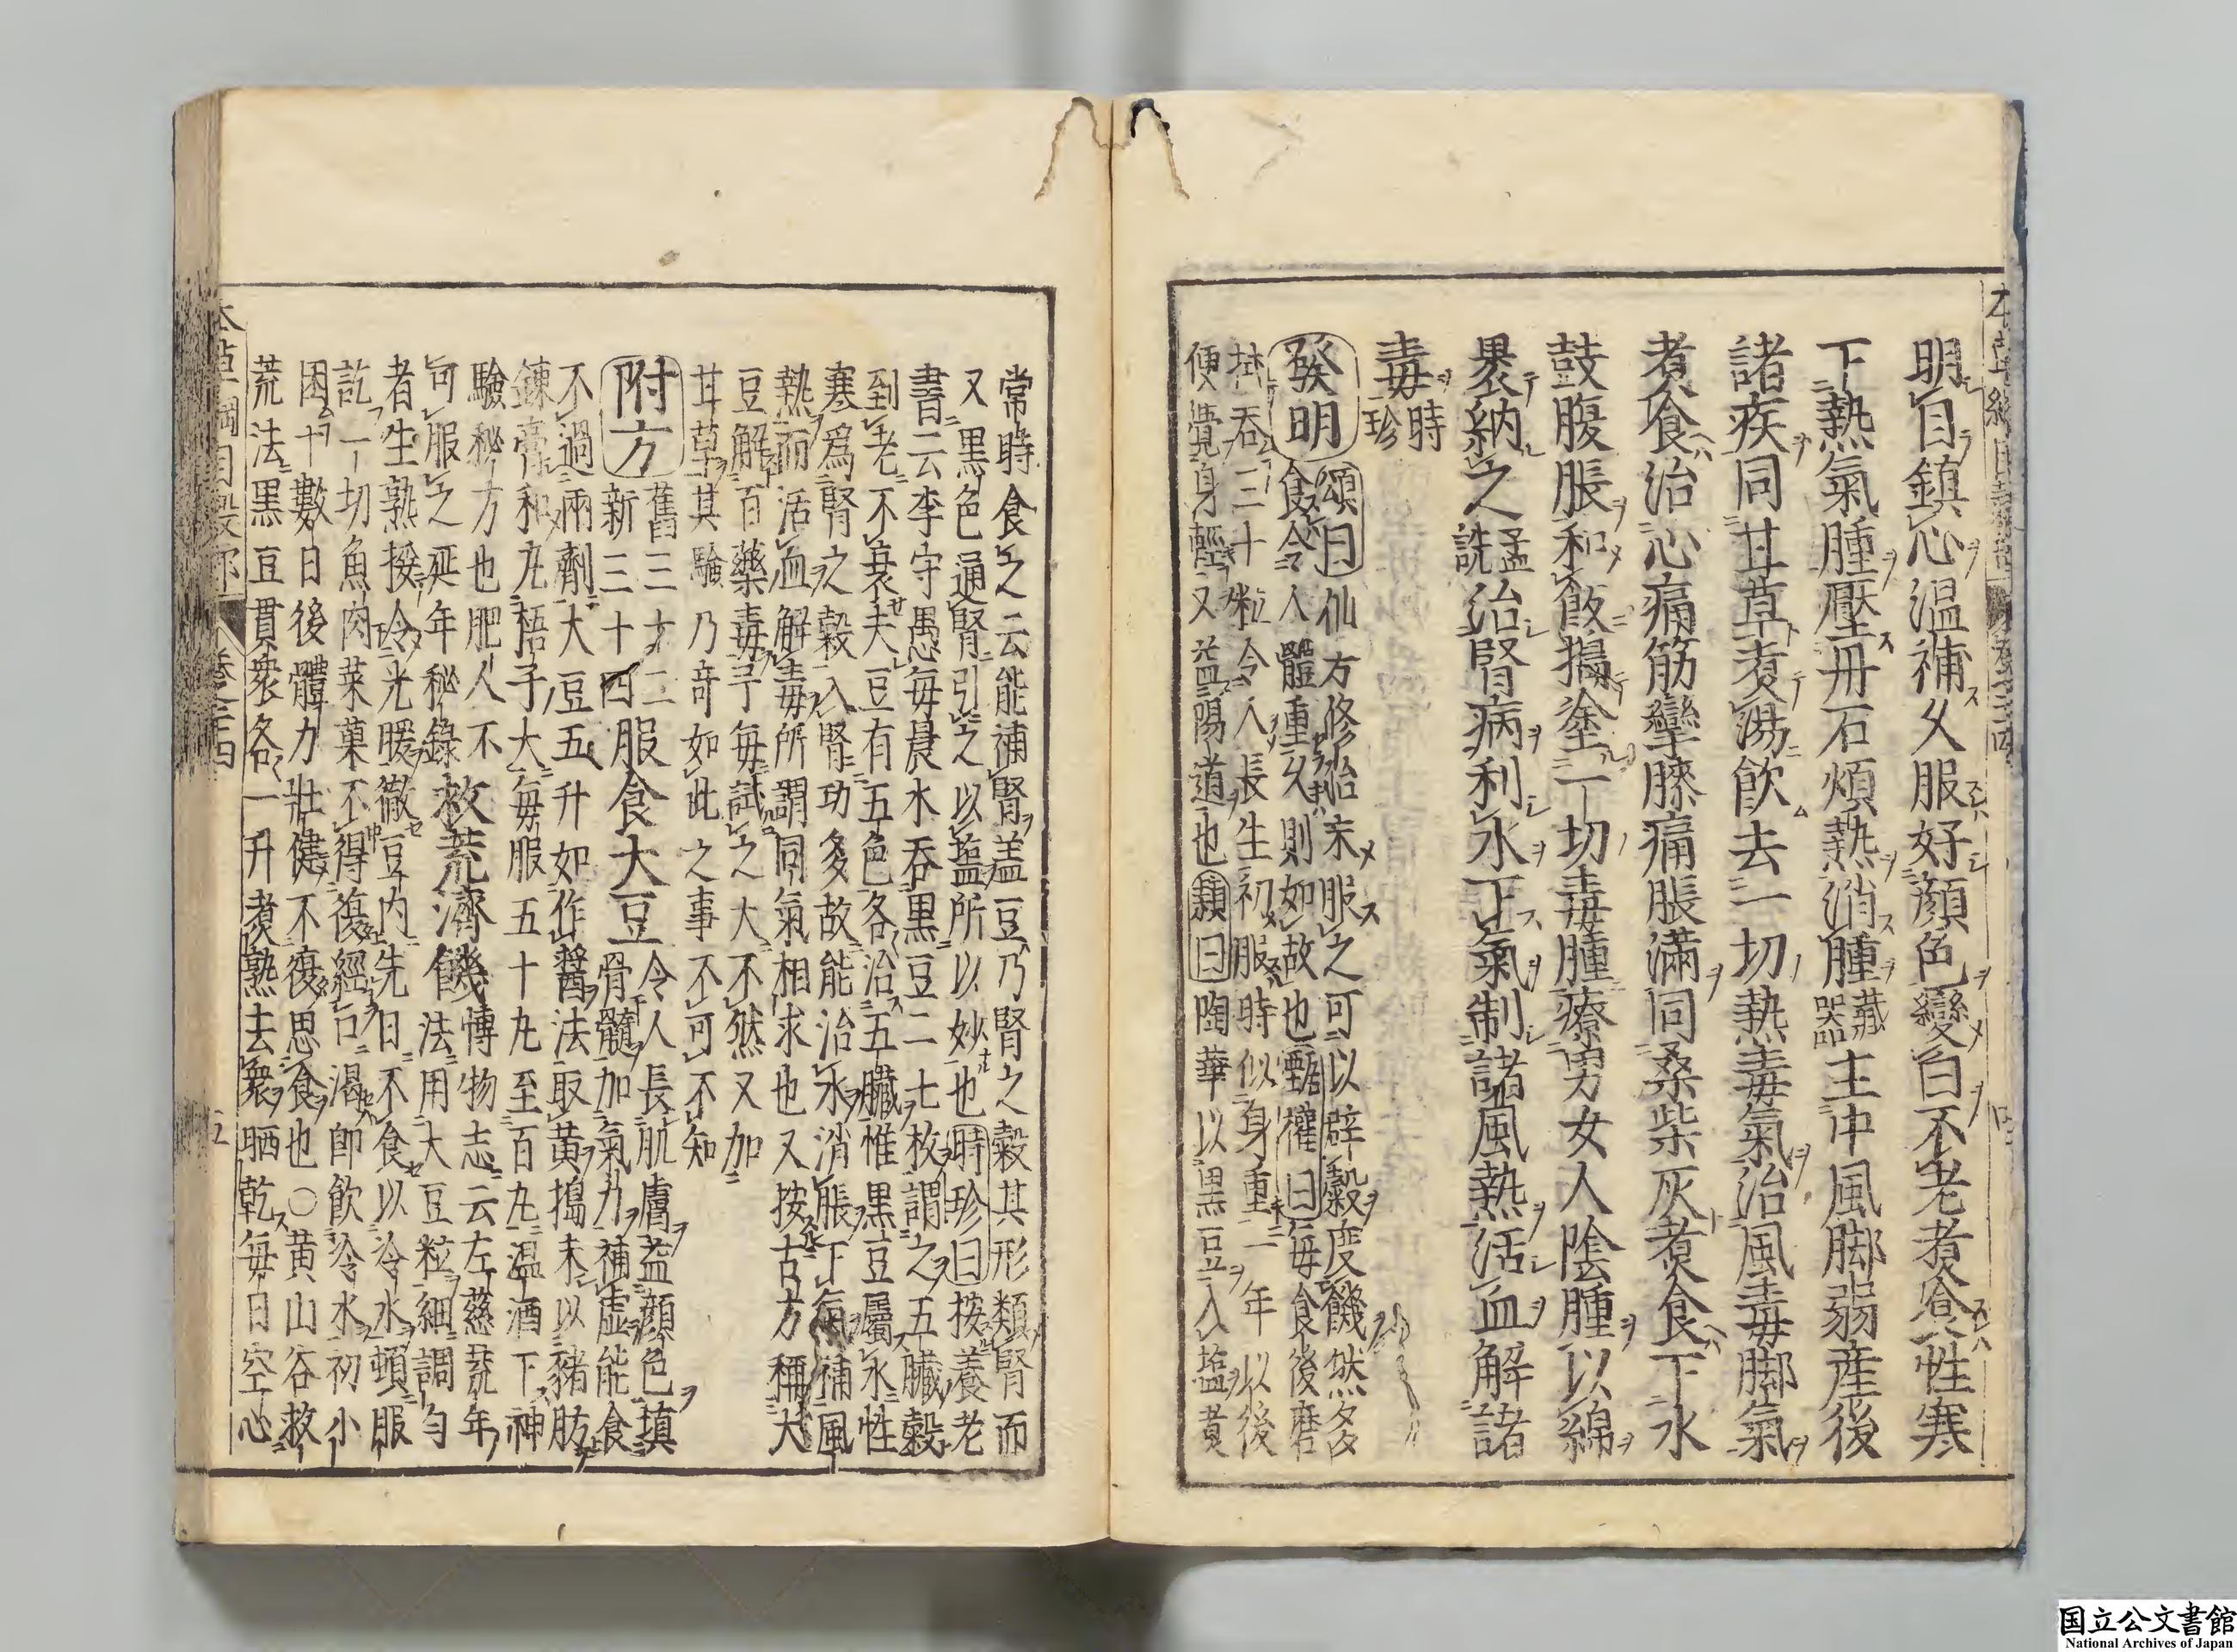 明目鎮心温補久服好顔色變白不老煮食性寒
下熱氣腫壓丹石煩熱消腫藏器主中風脚弱産後
諸疾同甘草煑湯飲去一切熱毒氣治風毒脚氣
煮食治心痛筋攣膝痛脹滿同桑柴灰煮食下水
鼓腹脹和飯搗塗一切毒腫療男女人陰腫以綿
裹納之孟詵治腎病利水下氣制諸風熱活血解諸
毒時珍
發明頌曰仙方修治末服之可以辟穀度饑然多
食令人體重久則如故也甄權曰毎食後磨
拭吞三十粒令人長生初服時似身重一年以後
便覺身輕又益陽道也頴曰陶華以黒豆入塩煮
常時食之云能補腎盖豆乃腎之穀其形類腎而
又黒色通腎引之以塩所以妙也時珍曰按養老
書云李守愚毎晨水吞黒豆二七枚謂之五臟穀
到老不衰夫豆有五色各治五臟惟黒豆屬水性
寒爲腎之穀入腎功多故能治水消脹下氣補風
熱而活血解毒所謂同氣相求也又按古方稱大
豆解百藥毒予毎試之大不然又加
甘草其驗乃奇如此之事不可不知
附方舊三十二新三十四服食大豆令人長肌膚益顔色填
骨髓加氣力補虚能食
不過兩劑大豆五升如作醬法取黄搗末以豬肪
錬膏和丸梧子大毎服五十丸至百丸温酒下神
驗秘方也肥人不
可服之延年秘錄救荒濟饑慱物志云左慈荒年
法用大豆粒細調匀
者生熟挼令光暖徹豆内先日不食以冷水頓服
訖一切魚肉菜菓不得復經口渇即飲冷水初小
困十數日後體力壯健不復思食也○黄山谷救
荒法黒豆貫衆各一升煮熟去衆晒乾毎日空心
本草綱目穀部 卷二十四 五
国立公文書館
National Archives of Japan